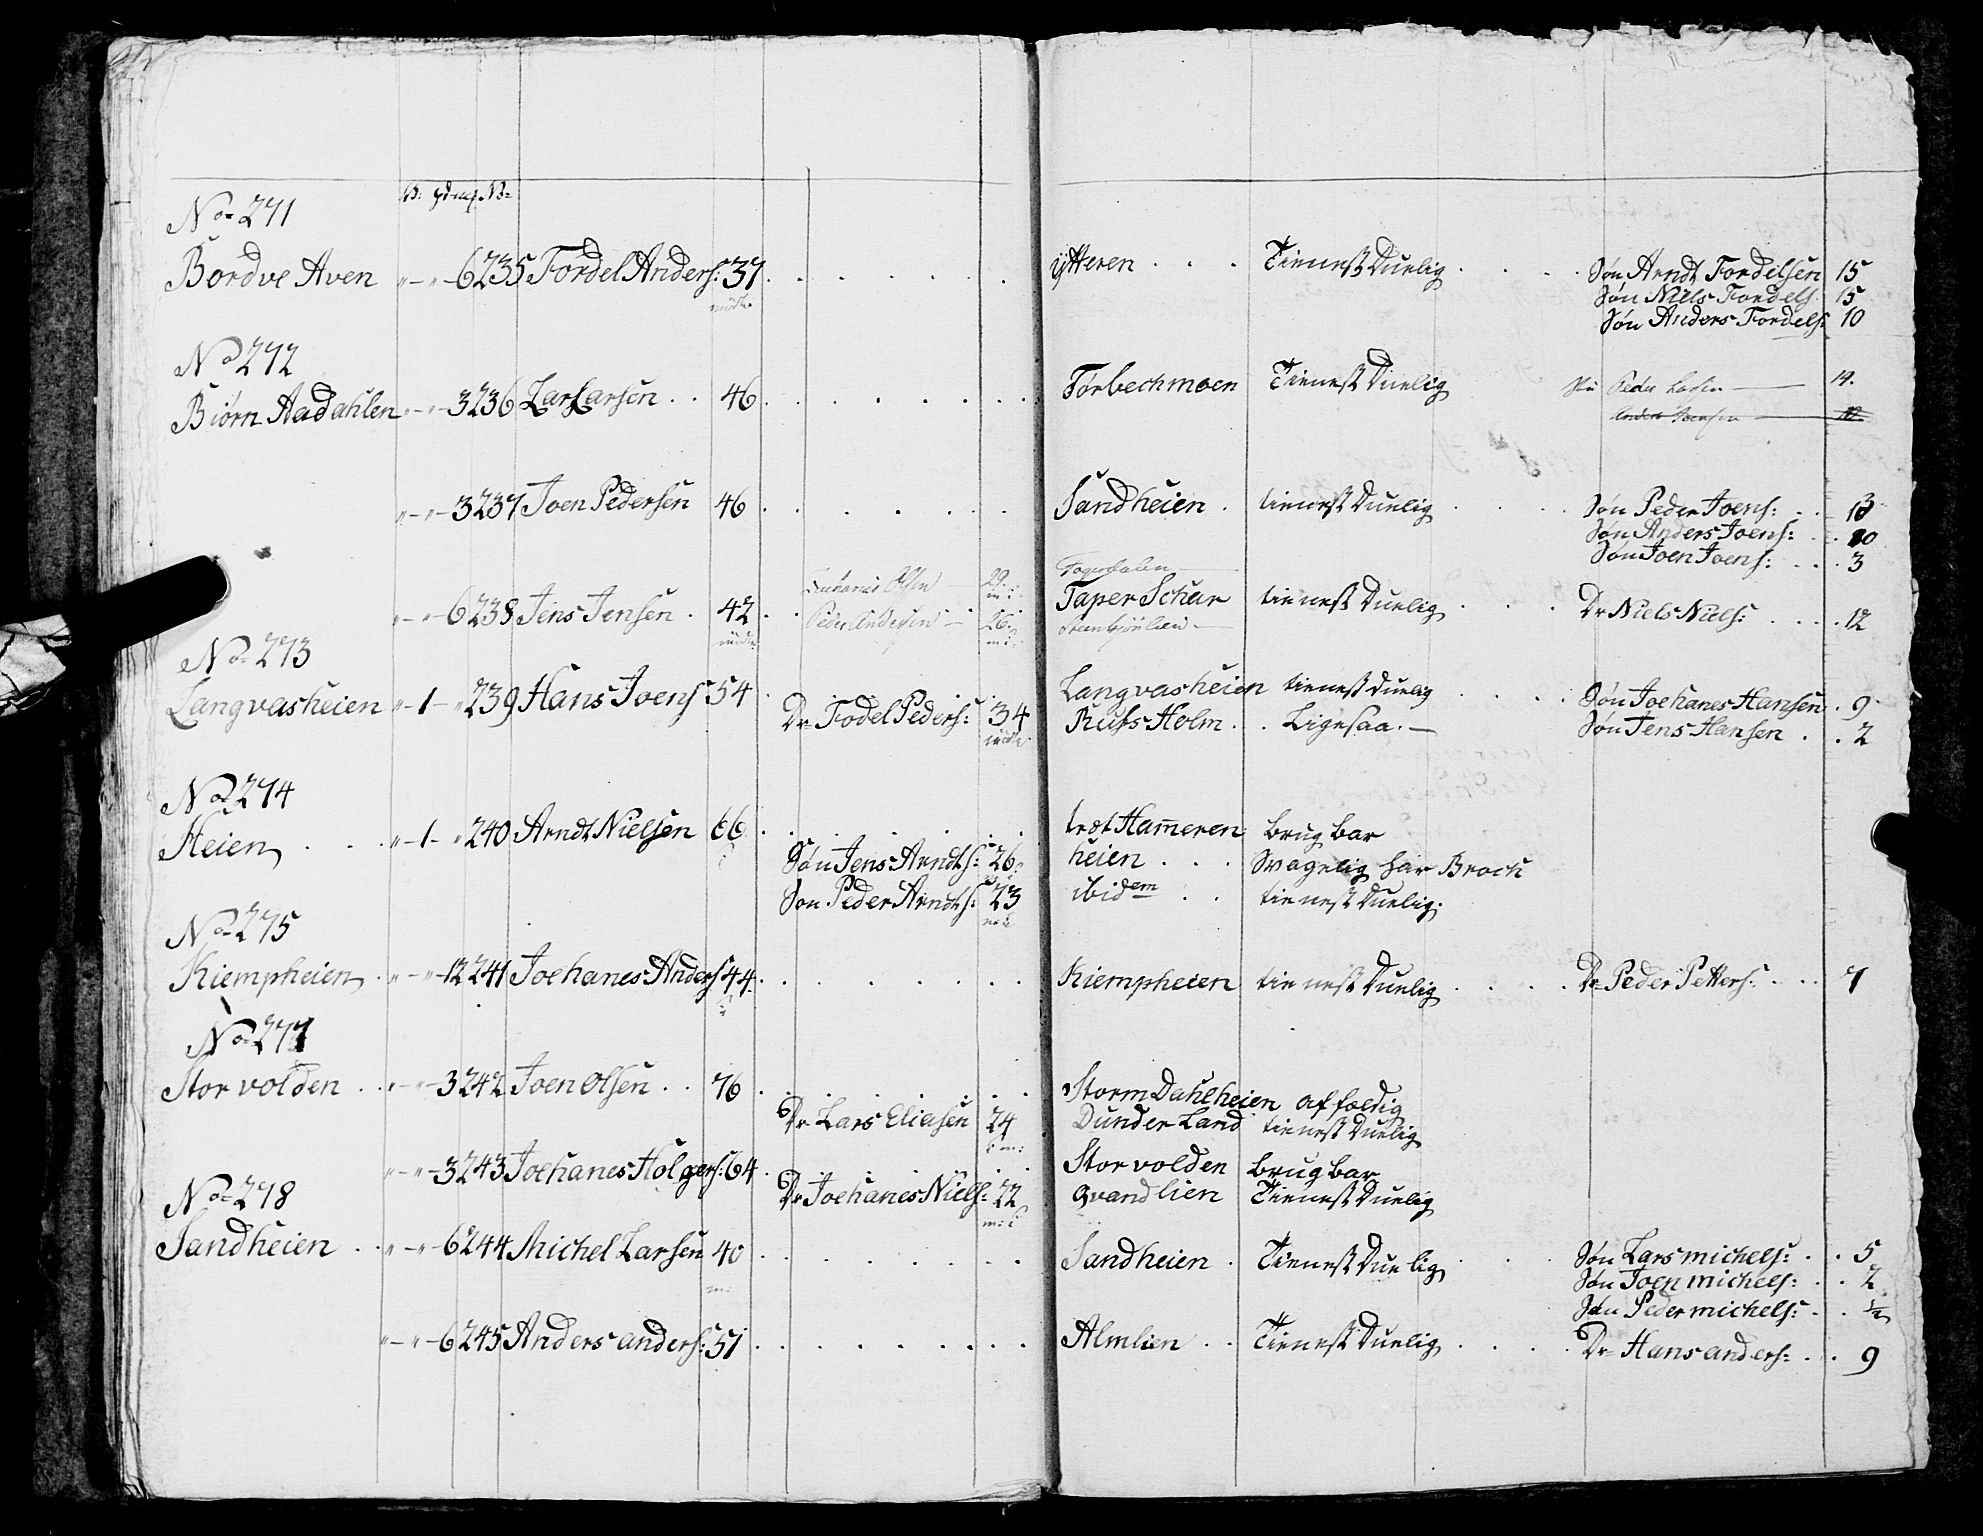 V: ℔ mg No
No 271
Bordve Aven " - " - 6 235 Fordel Anders: 37 ytteren Tienest Duelig Søn Arndt Fordelsen 15
mødt. Søn Niels Fordels: 15
Søn Anders Fordels: 10
No 272
Biørn Aadahlen " - " - 3 236 Lars Larsen 46 Førbechmoen Tienest Duelig Peder Larsen 14.
" - " - 3 237 Joen Pedersen 46 Sandheien tienest Duelig Søn Peder Joens: 13
Søn Anders Joens: 10
Søn Joen Joens: 3
Zacharias Olsen 29.
" - " - 6 238 Jens Jensen 42 Taper Schar tienest Duelig Dr Niels Niels: 12
mødt Peder Andersen 26.
No 273
Langvasheien " - 1 - " 239 Hans Joens 54 Langvasheien tienest duelig Søn Joehanes Hansen 9
Dr Fodel Peders: 34 Rufs Holm Ligesaa. Søn Jens Hansen 2
mødt
No 274
Heien " - 1 - " 240 Arndt Nielsen 66 træt Hameren brugbar
Søn Jens Arndts: 26 heien Svagelig har Broch
Søn Peder Arndts: 23 ibidem tienest Duelig.
No 275
Kiempheien " - " - 12 241 Joehanes Anders 44 Kiempheien tienest Duelig Dr Peder Petters: 7
No 277
Storvolden " - " - 3 242 Joen Olsen 76 Storm Dahlheien affældig
Dr Lars Eliasen 24 Dunder Land tienest Duelig
" - " - 3 243 Joehanes Holgers: 64 Storvolden brugbar
Dr Joehanes Niels: 22 Qvandlien Tienest Duelig
No 278
Sandheien " - " - 6 244 Michel Larsen 40 Sandheien Tienest Duelig Søn Lars michels: 5
Søn Joen michels: 2
Søn Peder michels: ½
" - " - 6 245 Anders anders: 51 Almlien Tienest Duelig Dr Hans anders: 9